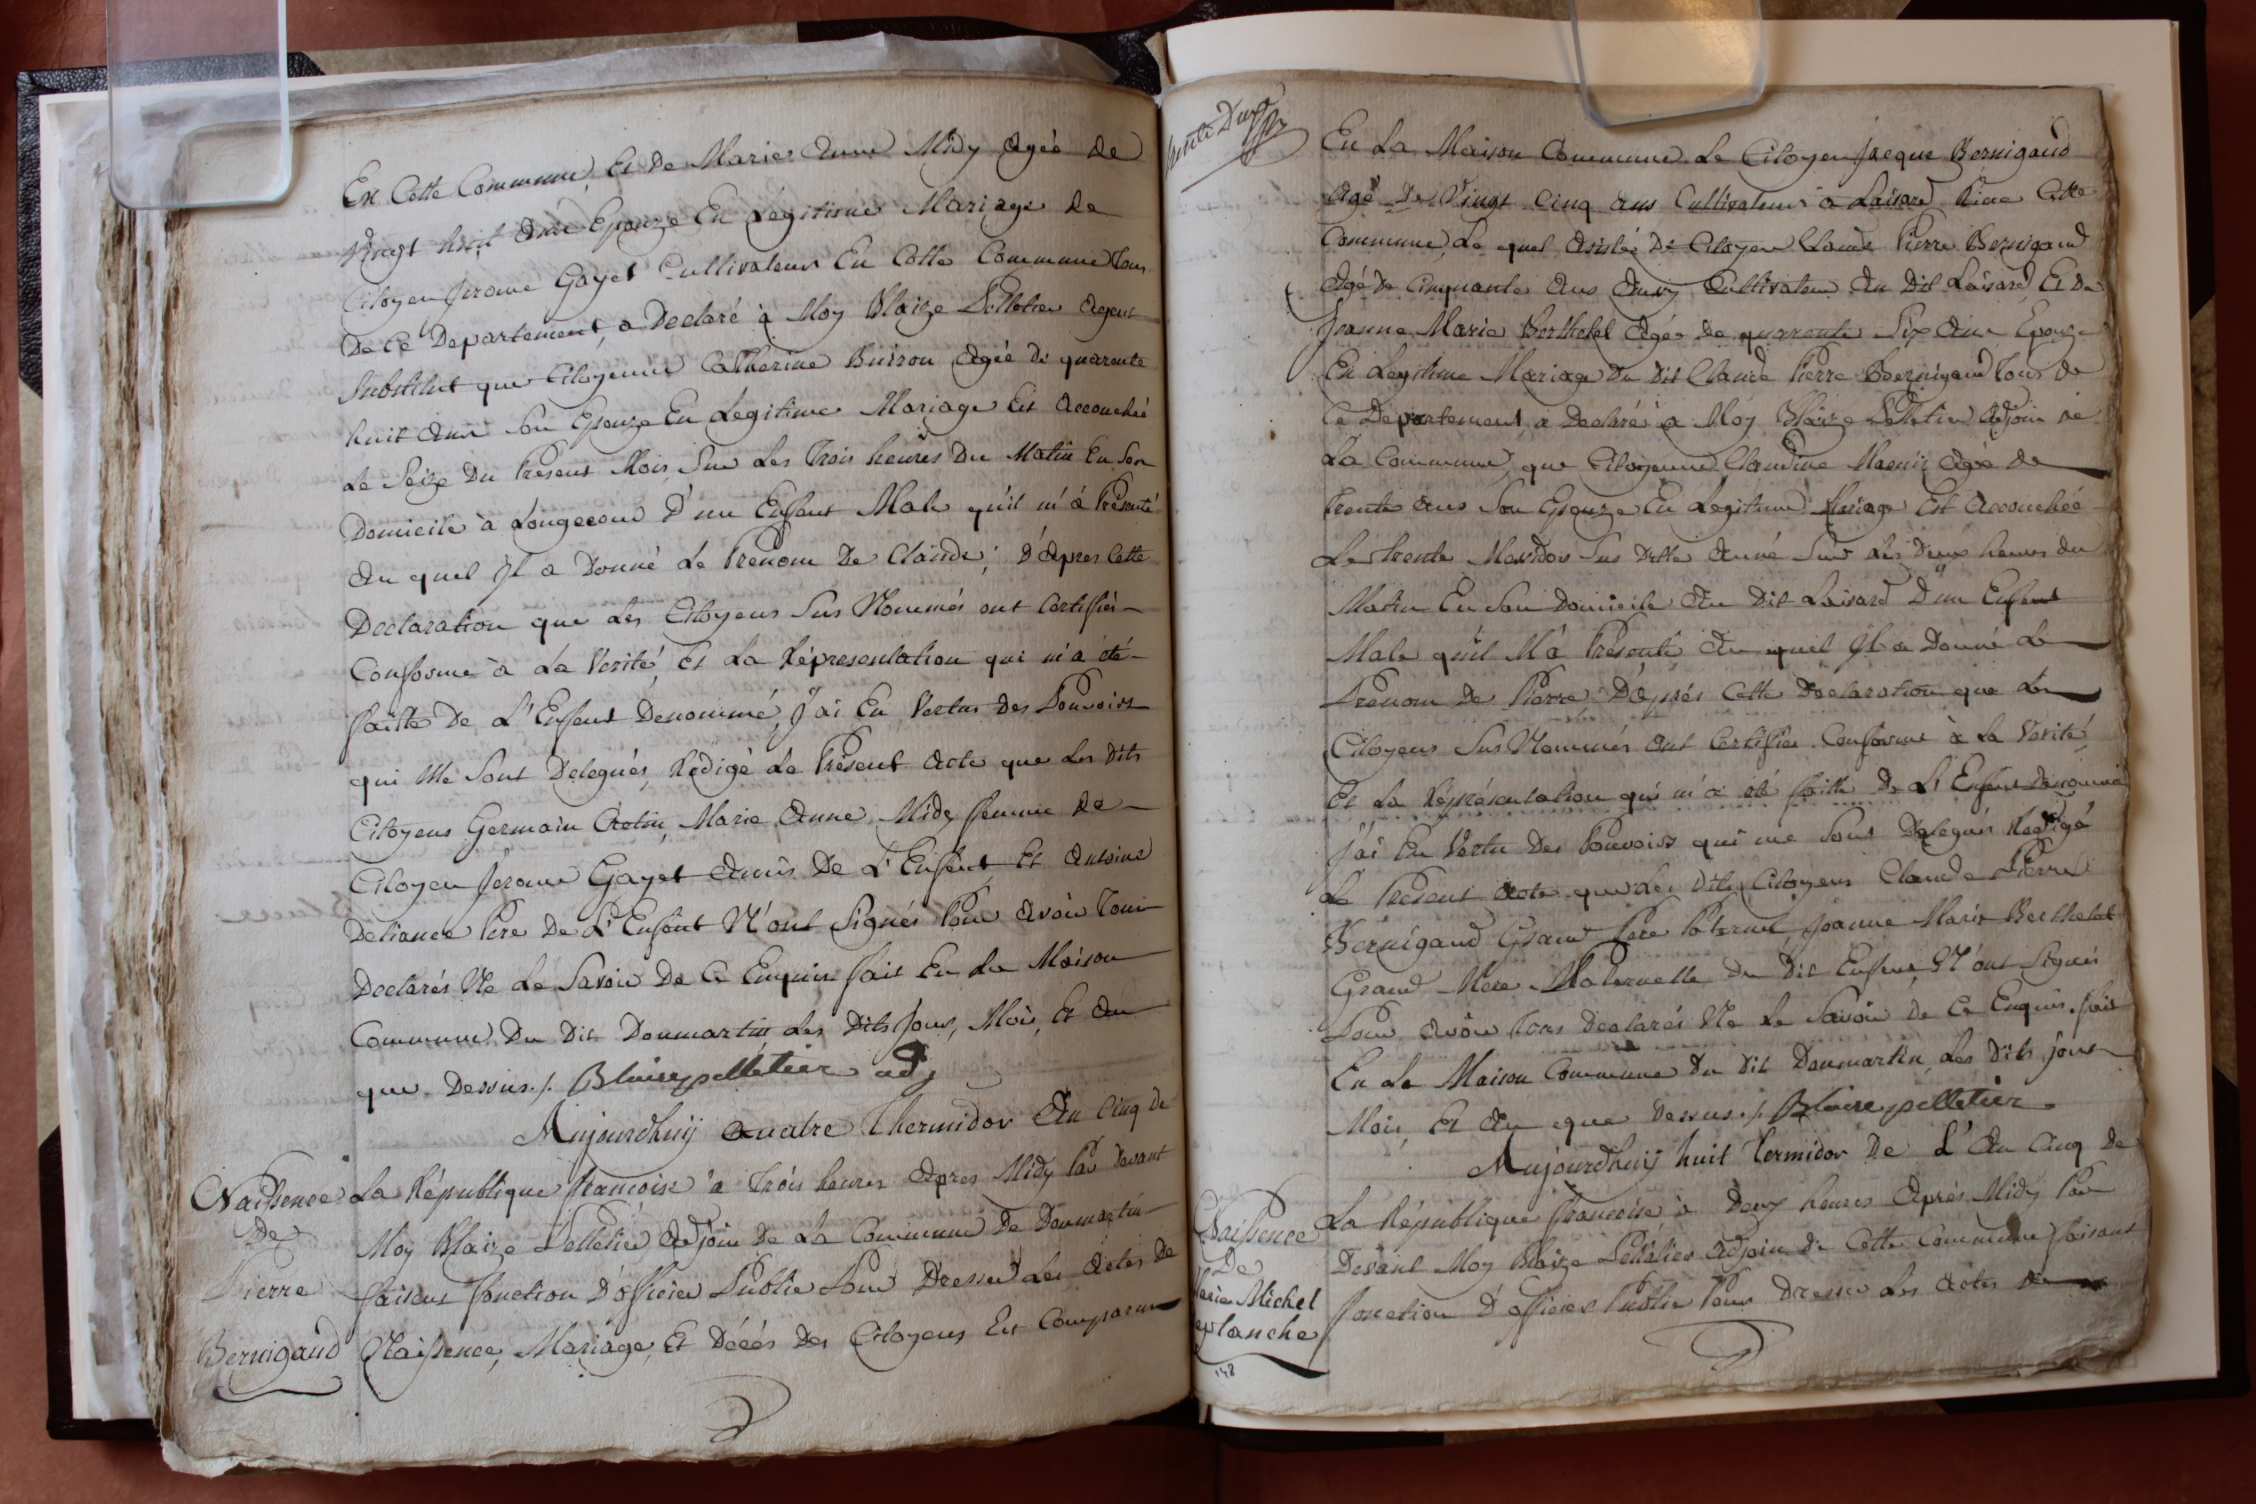 En Cette Commune, Et De Marie Anne Midy Agée de
Vingt huit Ans Epouze En Légitime Mariage de
Citoyen Jerome Gayet Cultivateur En Cette Commune Tous
De Ce Departement, a Declaré à Moy Blaize Pelletier Agent
Substitut que Citoyenne Catherine Buiron Agée de quarente
huit Ans Son Epouze En Légitime Mariage Est Accouchée
Le Seize Du Present Mois Sur Les Trois heures Du Matin En Son
Domicile à Longecour D'un Enfant Male qu'il m'à Présenté
Au quel Jl a Donné Le Prenom De Claude; D'Apres Cette
Declaration que Les Citoyens Sus Nommés ont Certiffiés
Conforme à La Verité, Et La Répresentation qui m'a été
faitte De L'Enfant Denommé, J'ai En Vertus Des Pouvoirs
qui Me Sont Delegués, Rédigé Le Présent Acte que Les Dits
Citoyens Germain Marie Anne Midy femme de
Citoyen Jerome Gayet Amis De L'Enfant, Et Antoine
Deliance Pere De L'Enfant N'ont Signés Pour Avoir Tous
Declarés Ne Le Savoir De Ce Enquis fait En La Maison
Commune Du Dit Donmartin Les Dits Jour, Mois, Et An
que Dessus./. Blaize pelletier adj
Aujourdhuij Quatre Thermidor An Cinq de
Naissence La République francoise à Trois heures Apres Midy Par Devant
De Moy Blaize Pelletier Adjoin De La Commune De Donmartin
Pierre faisant fonction D'officier Public Pour Dresser Les Actes De
Bernigaud Naissence, Mariage, Et Décés Des Citoyens Est Comparue
En La Maison Commune Le Citoyen Jacque Bernigaud
Agé De Vingt Cinq Ans Cultivateur à Laisard Riere Cette
Commune, Le quel Assisté De Citoyen Claude Pierre Bernigaud
Agé de Cinquante Ans Cultivateur Au Dit Laisard, Et De
Jeanne Marie Berthelot Agée de quarente Six Ans Epouze
En Legitime Mariage Du Dit Claude Pierre Bernigaud Tous de
Ce Departement, a Declaré à Moy Blaize Pelletier Adjoin de
La Commune, que Citoyenne Claudine Agée de
Trente Ans Son Epouze En Legitime Mariage Est Accouchée
Le Trente Messidor Sus Ditte Anné Sur Les Deux heures du
Matin En Son Domicile Au Dit Laisard D'un Enfant
Male qu'il M'à Présenté Au quel Jl a Donné Le
Prenom De Pierre D'Aprés Cette Déclaration que Les
Citoyens Sus Nommés Ont Certiffiés Conforme à La Verité,
Et La Répresentation qui m'a été faitte De L'Enfant denommé
J'ai En Vertu Des Pouvoirs qui me Sont Delegués Redigé
Le Présent Acte que Les Dits Citoyens Claude Pierre
Bernigaud Grand Pere Paternel Jeanne Marie Berthelot
Grand Mere Maternelle Du Dit Enfant N'ont Signés
Pour Avoir Tous Declarés Ne Le Savoir de Ce Enquis. fait
En La Maison Commune Du Dit Donmartin, Les Dits jour
Mois, Et An que Dessus./. Blaize pelletier
Aujourdhuij huit Termidor De L'An Cinq De
Naissence La République francoise à Deux heures Aprés Midy Par
De Devant Moy Blaize Pelletier Adjoin De Cette Commune faisant
Marie Michel fonction D'officier Public Pour Dresser Les Actes de
planche
148